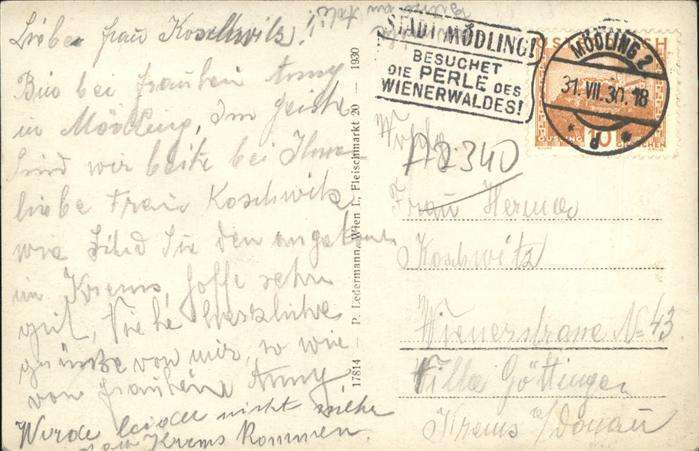 Liebe frau Koschwitz!
Bin bei fräulen Anny
in Mödling, Im geiste
sind wir beite bei Ihne
liebe Frau Koschwitz
wie sind Sie den angekomen
in Krems, hoffe sehr
gut, Viele herzliche
grüße von mir, so wie
von fräulein Anny
Werde leider nicht mehr
nach Krems kommen.
17814 P. Ledermann, Wien I., Fleischmarkt 20 — 1930
STADT MÖDLING!
BESUCHET
DIE PERLE DES
WIENERWALDES!
MÖDLING 2
31.VII.30.18
A2340
Frau Hermine
Koschwitz
Wienerstrasse No 43
Villa Göttingen
Krems a/Donau